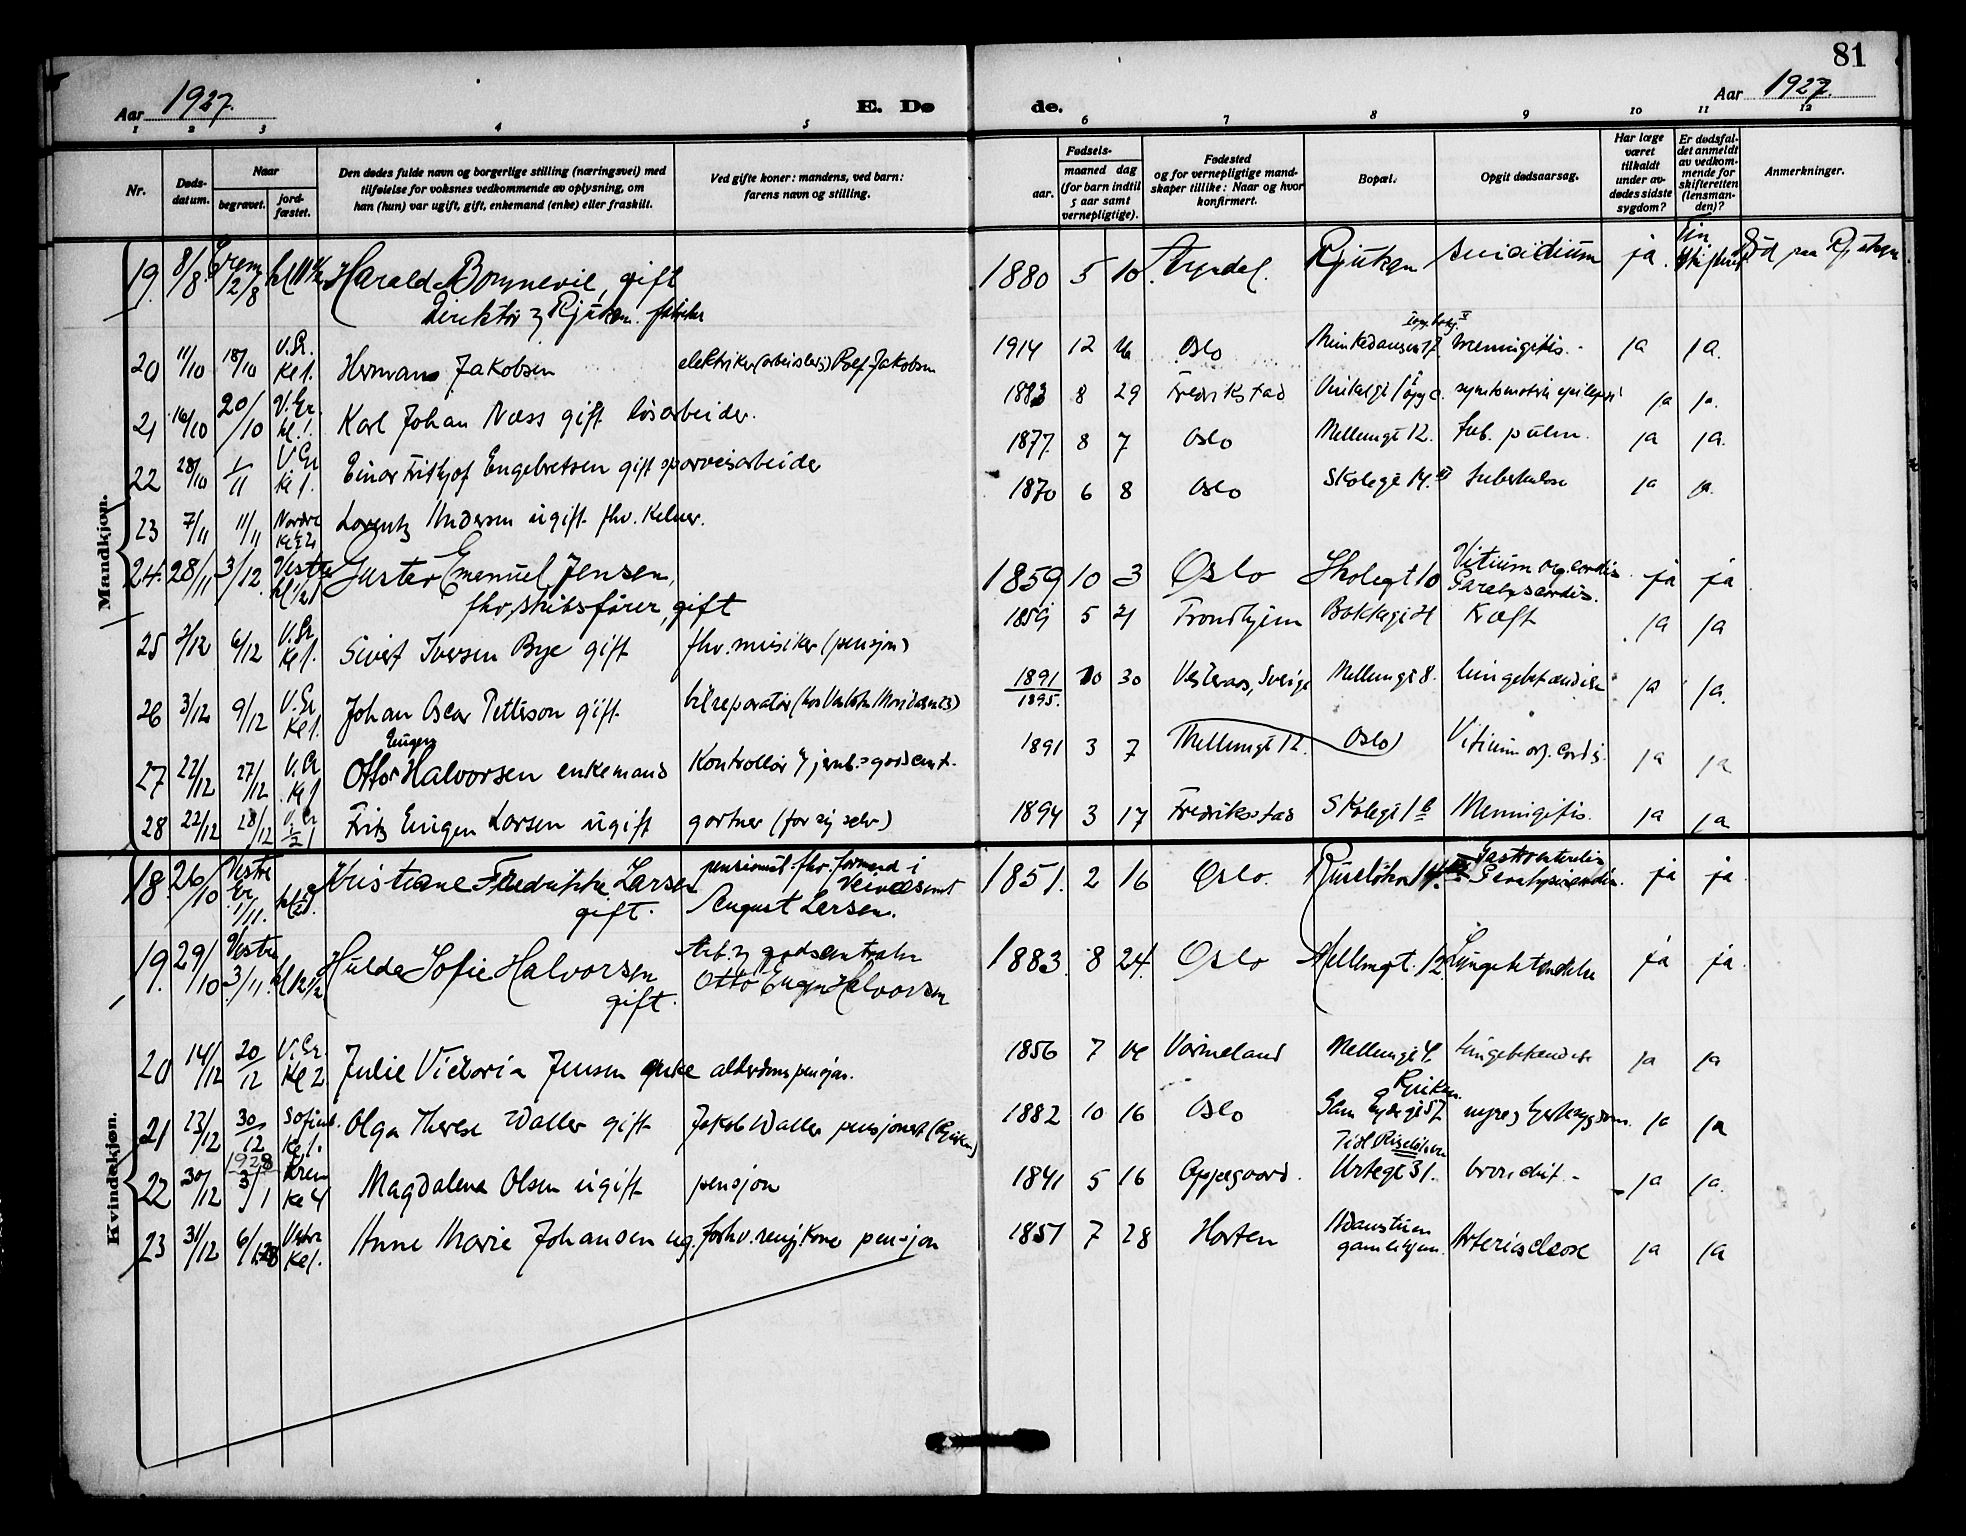 81
Aar 1927.
E. Dø
de.
Aar 1927.
1 2 3 4 5 6 7 8 9 10 11 12
Nr.
Døds-
datum.
Naar
begravet.
jord-
fæstet.
Den dødes fulde navn og borgerlige stilling (næringsvei) med
tilføielse for voksnes vedkommende av oplysning, om
han (hun) var ugift, gift, enkemand (enke) eller fraskilt.
Ved gifte koner: mandens, ved barn:
farens navn og stilling.
Fødsels-
aar.
maaned dag
(for barn indtil
5 aar samt
vernepligtige).
Fødested
og for vernepligtige mand-
skaper tillike: Naar og hvor
konfirmert.
Bopæl.
Opgit dødsaarsag.
Har læge
været
tilkaldt
under av-
dødes sidste
sygdom?
Er dødsfal-
det anmeldt
av vedkom-
mende for
skifteretten
(lensman-
den)?
Anmerkninger.
Mandkjøn.
19. 8/8 Krem 12/8 Harald Bonnevie, gift 1880 5 10. Arendal. Rjukan suicidium ja. Død paa Rjukan
Direktør Rjukan fabriker
20 11/10 18/10 V. Gr. Kl 1. Herman Jakobsen elektriker (arbeidsløs) Rolf Jakobsen 1914 12 Oslo Munkedamsv. meningitis. ja ja.
21 16/10 20/10 V. Gr. kl. 1. Karl Johan Næss gift løsarbeider. 1883 8 29 Fredrikstad symtomatisk epilepsi ja ja.
22 28/10 1/11 V Gr Kl 1. Einar Fritjof Engebretsen gift sporveisarbeider 1877. 8 7 Oslo Mellemgt 12. Tub. pulm. ja ja.
23 7/11 11/11 Nordre Lorentz Andersen ugift fhv. Kelner. 1870 6 8 Oslo Skolegt 14. Tuberkulose ja ja.
24. 28/11 3/12. Vestre Gustav Emanuel Jensen, 1859 10 3 Oslo Skolegt 10 Vitium org. cordis ja ja
fhv. skibsfører, gift Paralys. cordis.
25 2/12 6/12 V. Gr Kl 1. Sivert Iversen Bye gift fhv. musiker (pensjon) 1859 5 21 Trondhjem Kræft ja ja
26 3/12 9/12 V. Gr Kl 1. Johan Oscar Petterson gift bilreparatør 1891 10 30 Vesteraas, Sverige Mellemgt 8. lungebetændelse ja ja.
1895.
27 22/12 27/12 V. Gr kl 1 Otto Eugen Halvorsen enkemand Kontrollør 1891 3 7 Mellemgt 12. Oslo Vitium org. cordis. ja ja
28 22/12 28/12 V. Gr Fritz Eugen Larsen ugift gartner (for sig selv) 1894 3 17 Fredrikstad Skolegt 1 b Mennigitis. ja ja
Kvindekjøn.
18. 26/10 Vestre Gr. 1/11. Kristiane Fredrikke Larsen pensionist. fhv. formand i 1851. 2 16 Oslo. Gastroenterolia ja ja
gift. Veivæsenet
August Larsen. Paralysis cordis.
19. 29/10 Vestre 3/11. Hulda Sofie Halvorsen Arb. godscentralen 1883. 8 24. Oslo Mellemgt. 12 Lungebetændelse ja ja.
gift. Otto Eugen Halvorsen
20 14/12 20/12 V. Gr. Kl 2 Julie Victoria Jensen enke alderdomspensjon. 1856 7 Vermeland Mellemgt 4. Lungebetændelse ja ja
21 23/12 30/12 Sofienb. Kl 1. Olga Therese Waller gift Jakob Waller pensjonert (Rjukan) 1882 10 16 Oslo Rjukan. Sam Eydesgt 57 nyre og hjertesygdom. ja ja
22 30/12 1928 3/1 Krem Kl 4 Magdalena Olsen ugift pensjon 1841 5 16 Oppegaard. Urtegt 31. bronchit. ja ja.
23 31/12 6/1 28 Vestre Kl 1. Anne Marie Johansen ug. forhv. rengj. kone pensjon 1851 7 28 Horten Adamstuen gamlehjem. Arterioscleose ja ja